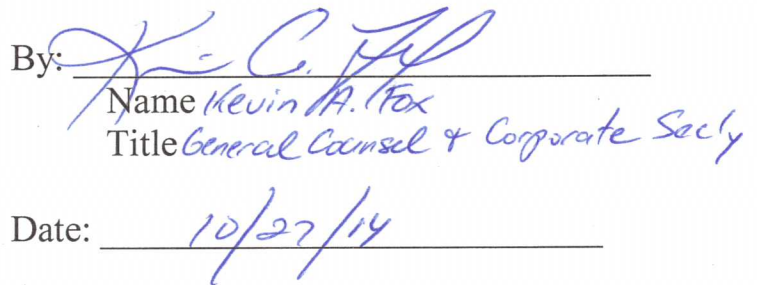 By:
Name Kevin A. Fox
Title General Counsel & Corporate Sec'y
Date: 10/27/14